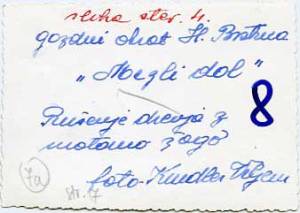 slika štev. 4.
gozdni obrat H. Bistrica
"Mozgli dol"
Rušenje drevja z
motorno žago
foto-Kindler Viljem
8
7a
str. 7